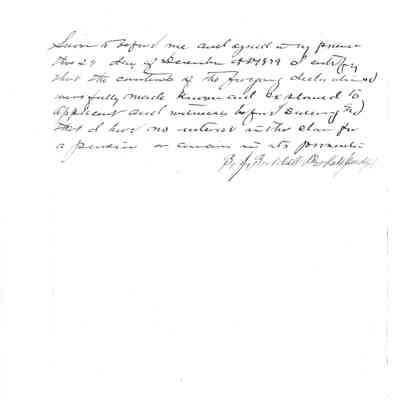 Sworn to before me and signed in my presence
this 29 day of December A.D. 1879 I certify
that the contents of the foregoing declaration
were fully made known and explained to
applicant and witnesses before swearing
that I have no interest in the claim for
a pension or concern in its prosecution
Probate Judge